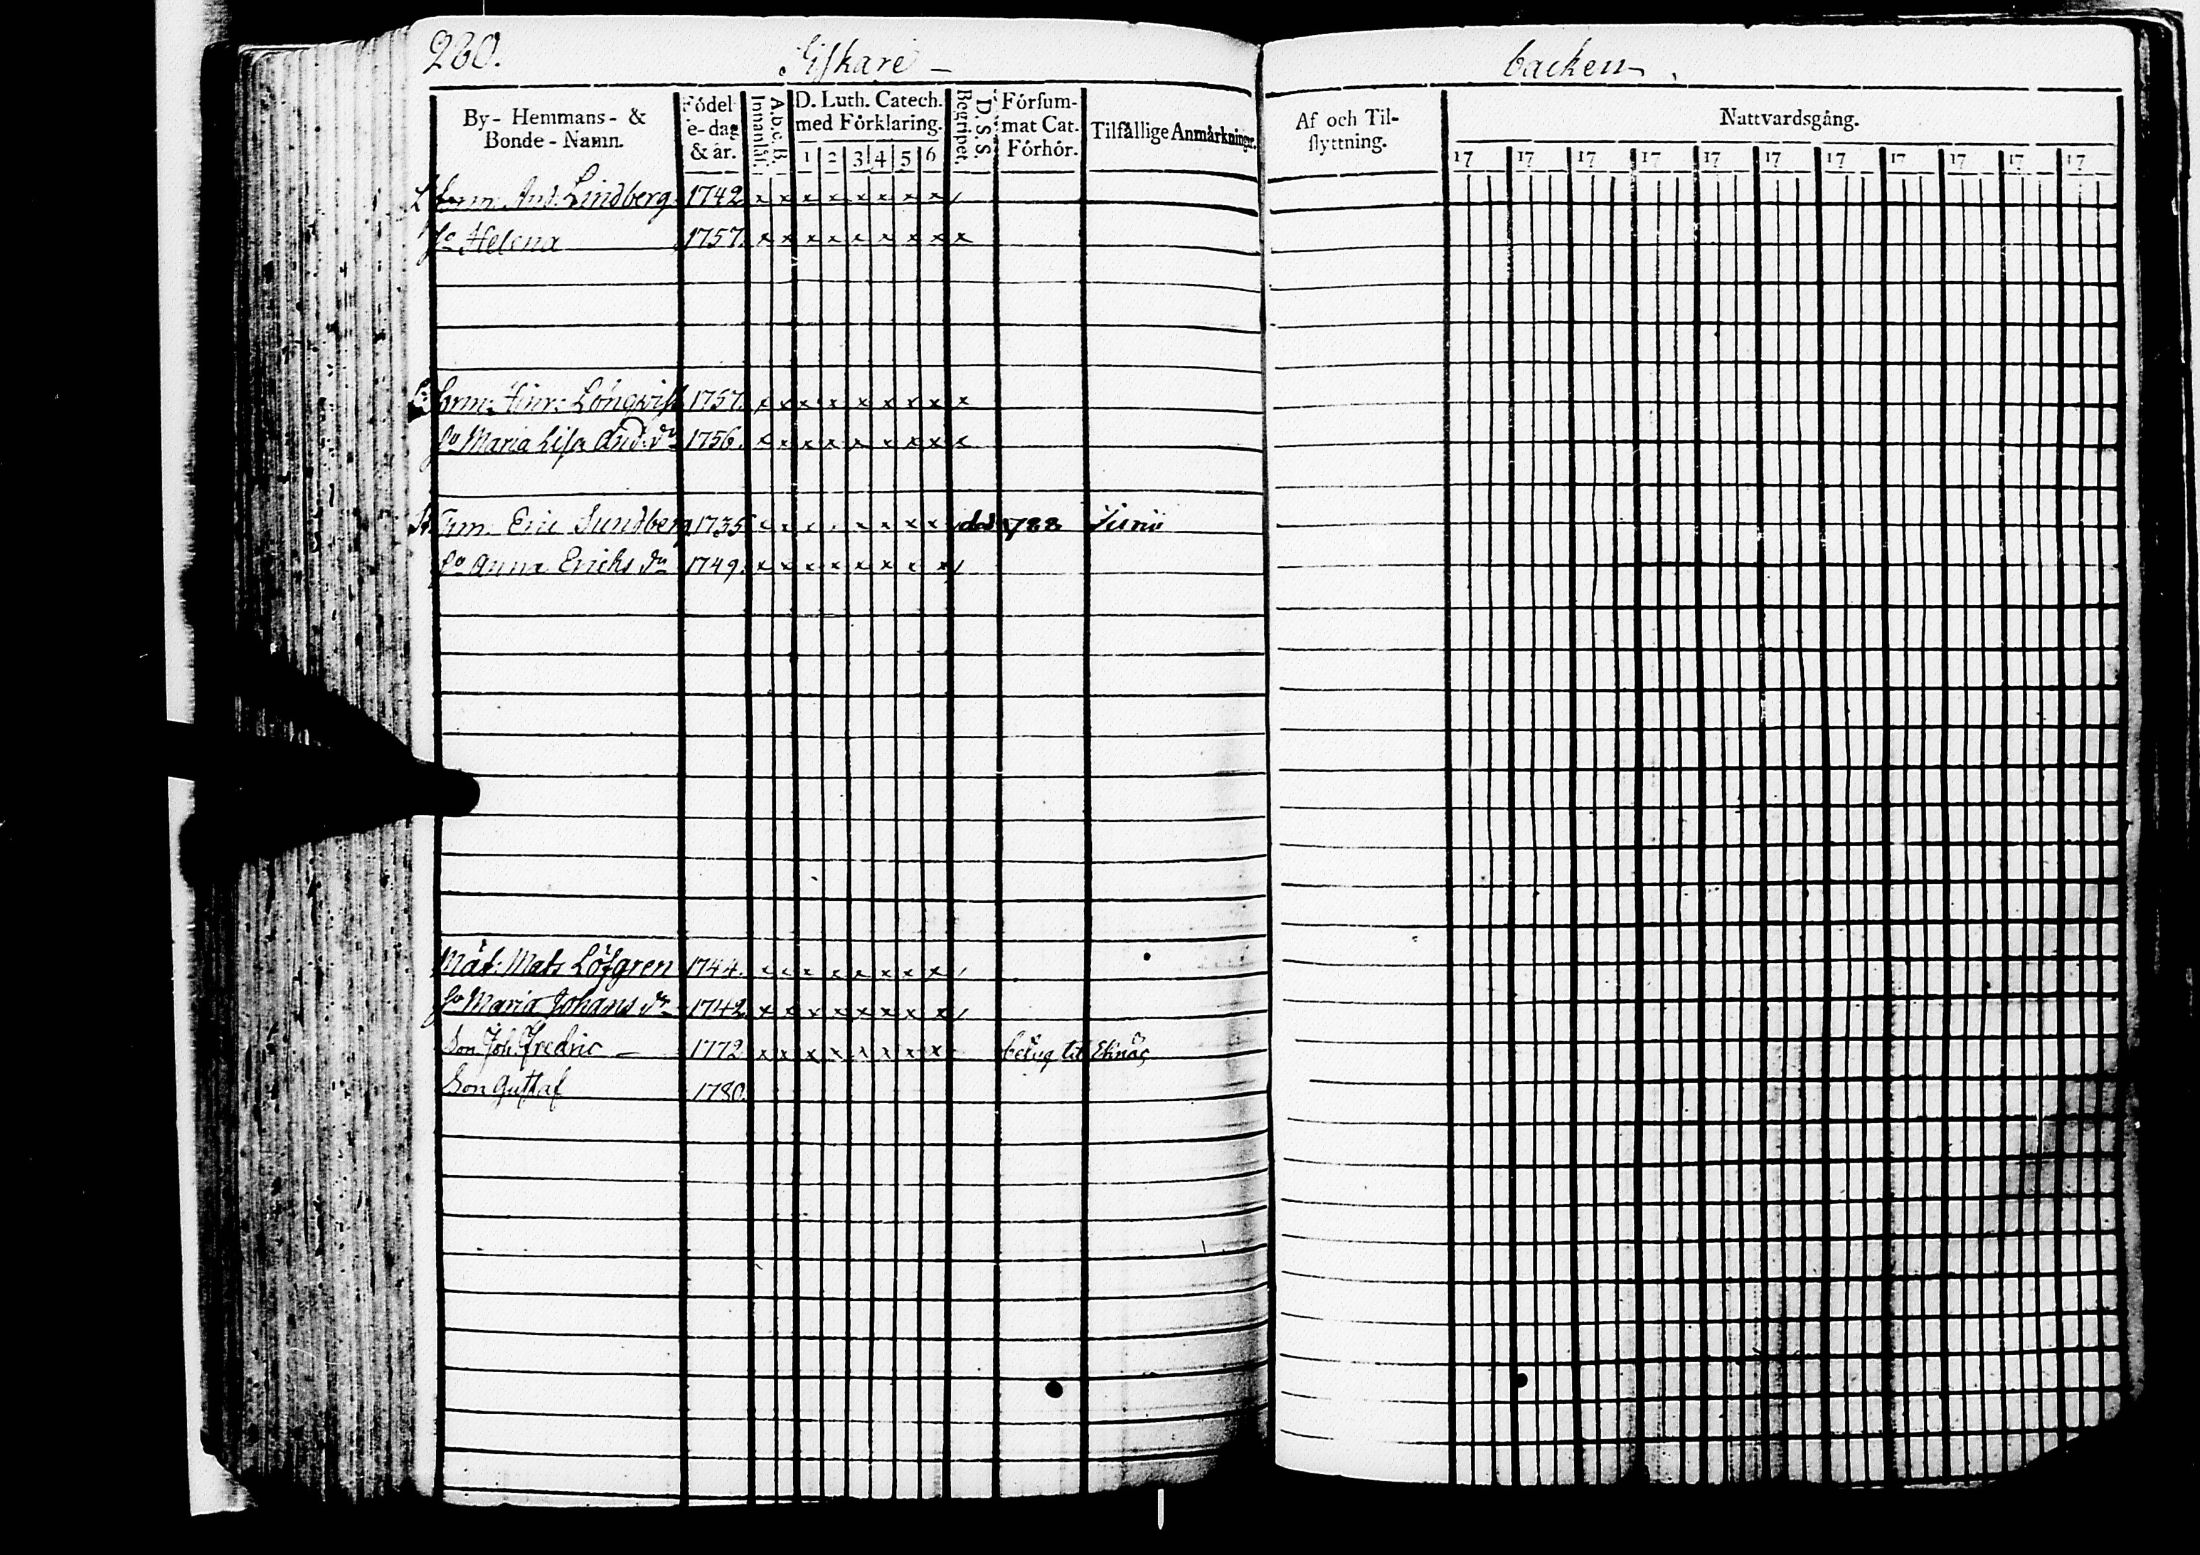 260.
Fiskare -
backen
By- Hemmans- & Bonde-Namn.
Födel e-dag & år.
A.b.c.B. Innanläs.
D. Luth. Catech. med Förklaring.
1 2 3 4 5 6
D. S. S. Begripet.
Försum-mat Cat. Förhör.
Tilfällige Anmärkningar.
Af och Til-flyttning.
Nattvardsgång.
17 17 17 17 17 17 17 17 17 17 17
And: Lindberg 1742 x x x x x x x x
Helena 1757. x x x x x x x x x
Hinr: Lönqvist 1757. x x x x x x x x x
Maria Lisa And: dr 1756. x x x x x x x x x
Eric Sundberg 1735 x x x x x x x x död 1788
Anna Erichs dr 1749. x x x x x x x x
Mats Löfgren 1744. x x x x x x x x
Maria Johans dr 1742 x x x x x x x x
Son Joh. Fredric - 1772 x x x x x x x x til Eknäs
Son Gustaf 1780.